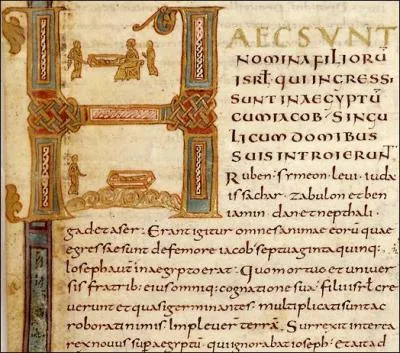 HAEC SUNT
NOMINA FILIORŪ
ISRL̄ · QUI INGRESSI
SUNT IN AEGYPTŪ
CUM IACOB · SINGU
LI CUM DOMIBUS
SUIS INTROIERUNT ·
Ruben · symeon · levi · iuda ·
issachar · zabulon et ben
iamin · dan et nepthali ·
gad et aser · Erant igitur omnes animae eorū quae
egressae sunt de femore iacob septuaginta quinq;
Ioseph aut̄ in aegypto erat · Quo mortuo et univer
sis fratrib; eius omniq; cognatione sua · filii isrl̄ cre
verunt et quasi germinantes · multiplicati sunt ac
roborati nimis · Implever̄ terrā · Surrexit interea
rex novus sup̄ aegyptū qui ignorabat ioseph · et ait ad